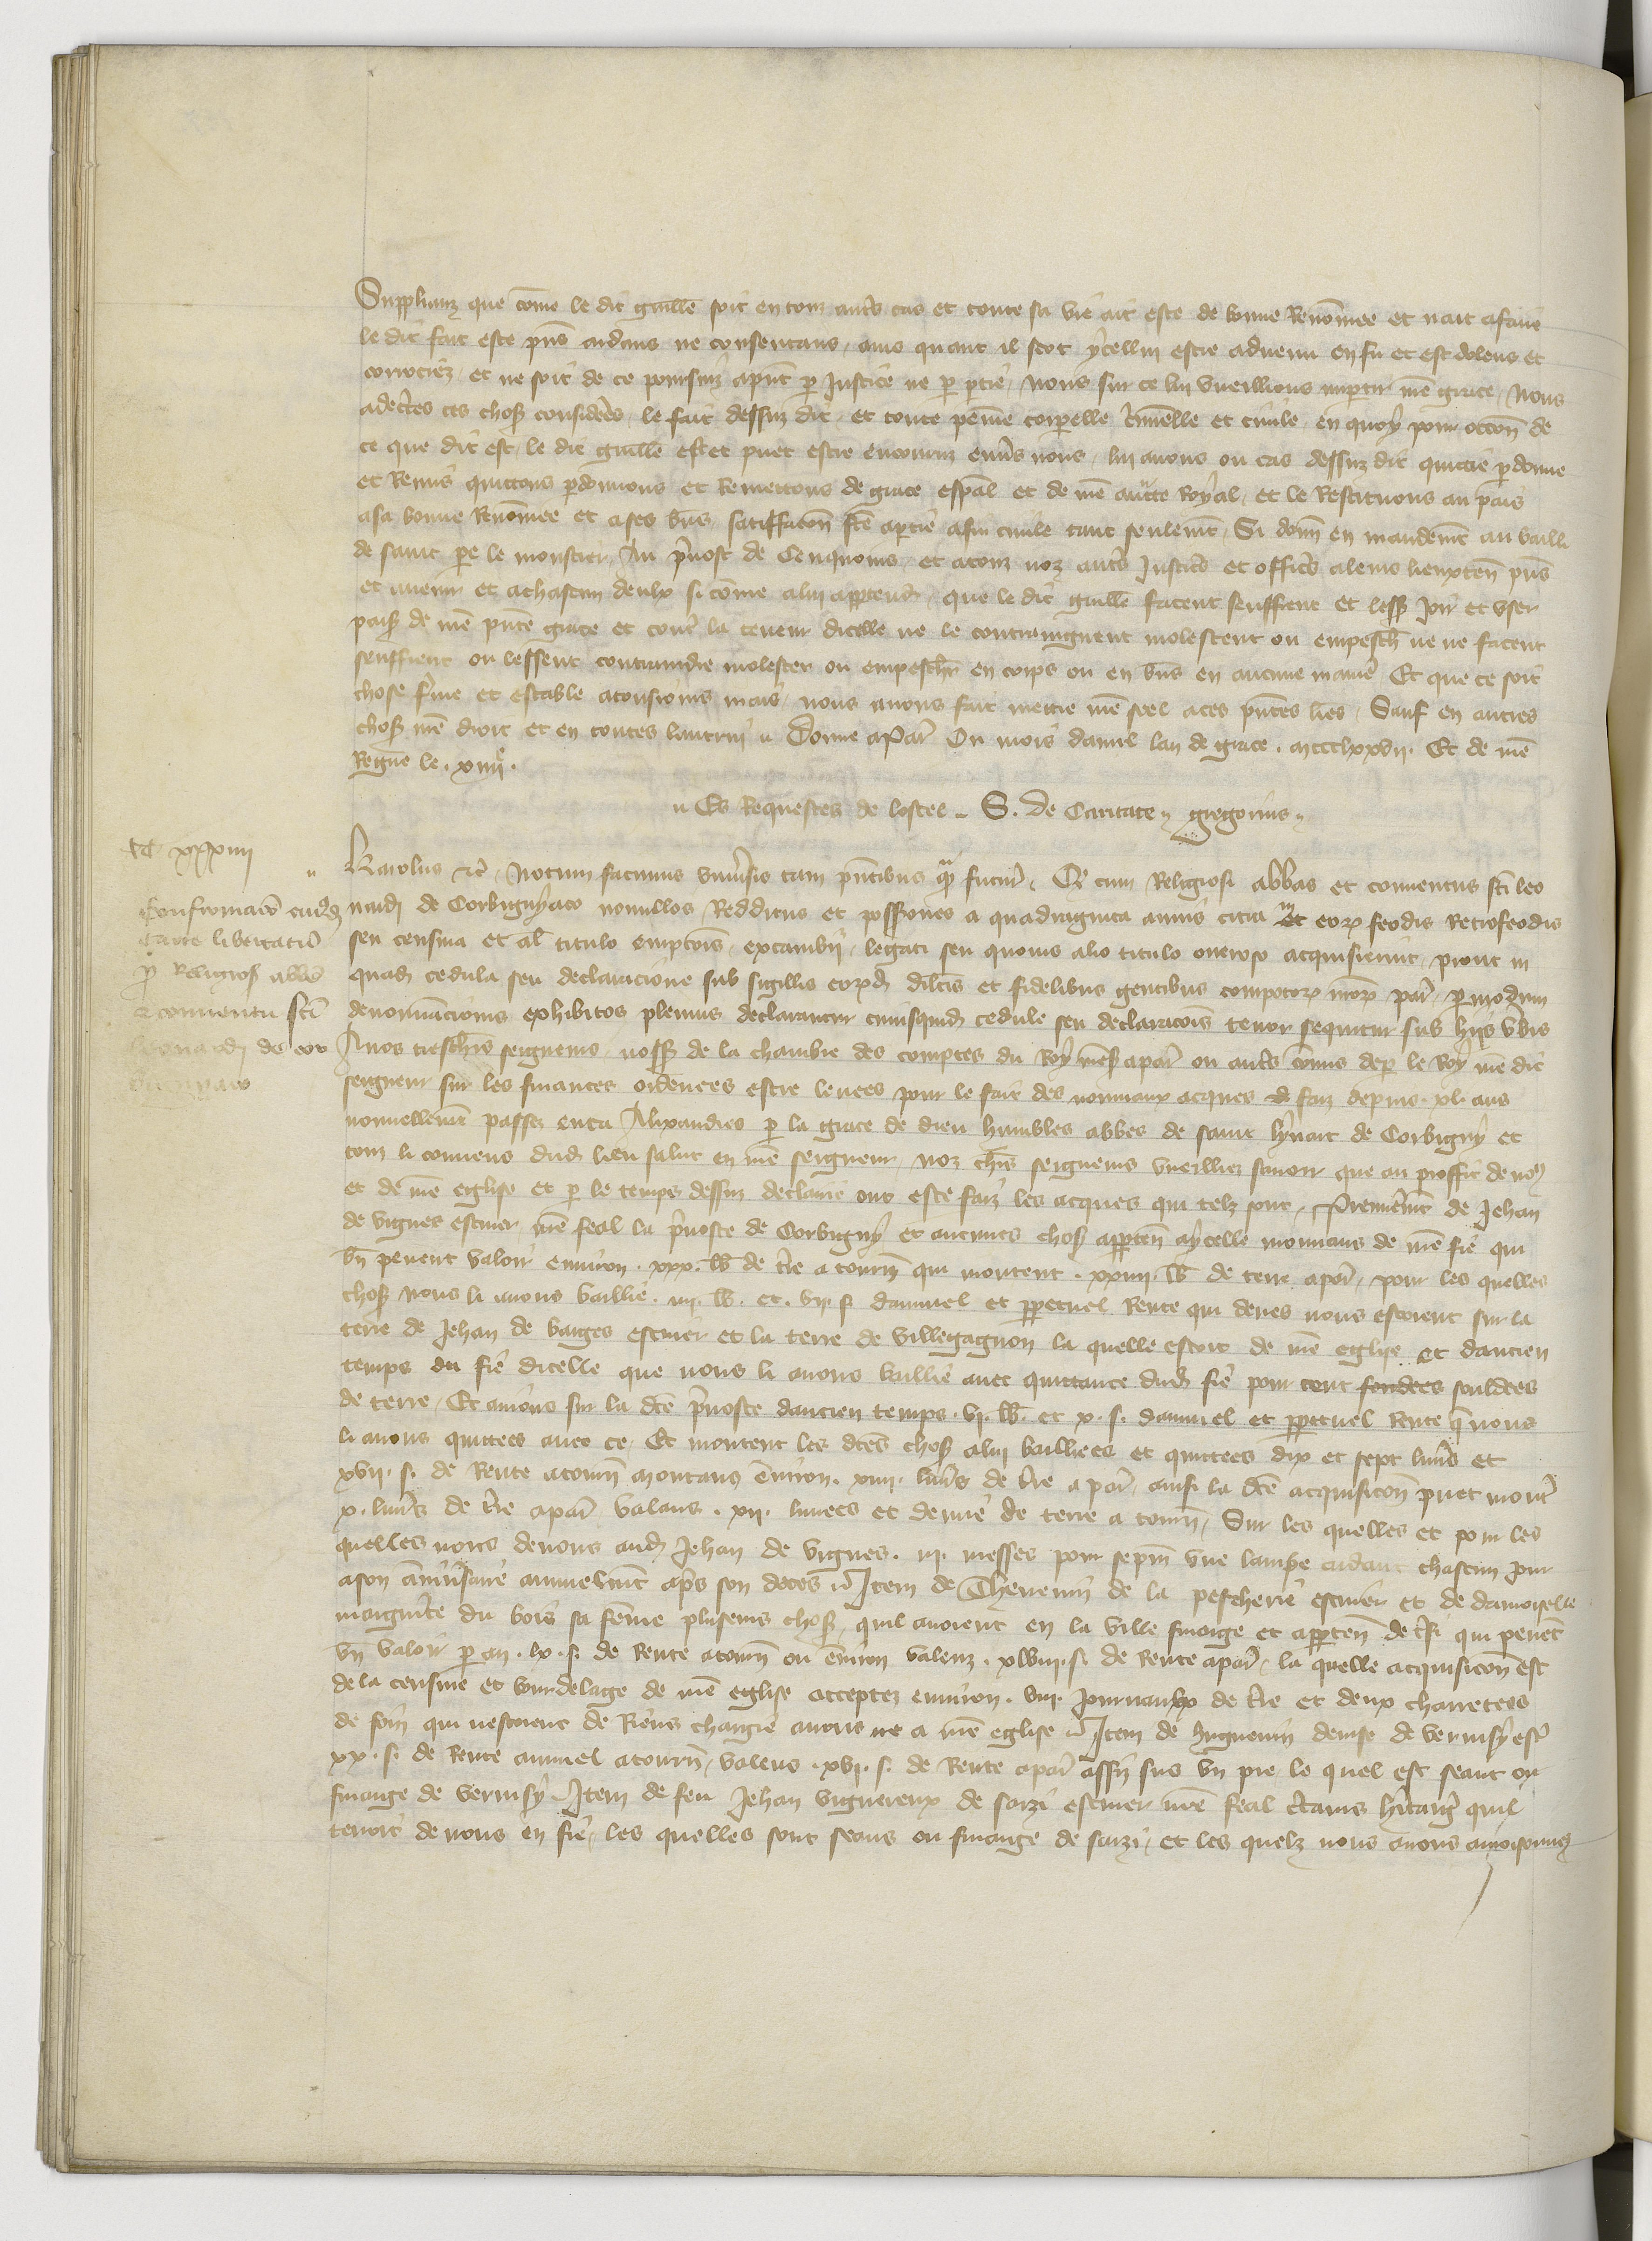 Supplianz que come le dit guille soit en tous autres cas et toute sa vie ait este de bonne Renomee et nait afaire
le dit fait este pns aidans ne consentans, ains quant il scot ycellui estre advenu en fu et est dolens et
corrociez, et ne soit de ce poursui apnt p Justice ne p ptie, nous sur ce lui vueillions impartir nre grace, Nous
adectes ces choses considerees, le fait dessus dit, et toute peinne corporelle criminelle et civile, en quoy pour occon de
ce que dit est, le dit guille est et puet estre encouru envers nous, lui avons ou cas dessus dit quictie pdonne
et Remis quictons pdonnons et Remettons de grace espal et de nre auctte Royal, et le Restituons au pais
a sa bonne Renomee et a ses bns, satisfacon fte a ptie a fin civile tant seulemt, Si donn en mandemt au bailli
de saint pere le moustier, Au prevost de Cenquoins, et a touz noz autres Justiciers et officiers a leurs lieuxten pns
et avenir et a chascun deulx si come a lui apptendra, que le dit guille facent seuffrent et lessent joir et user
pais de nre pnte grace et contre la teneur dicelle ne le contraingnent molestent ou empeschent ne ne facent
seuffrent ou lessent contraindre molester ou empeschier en corps ou en bns en aucune maniere Et que ce soit
chose ferme et estable a tousiours mais, nous avons fait mettre nre seel a ces pntes lres, Sauf en autres
choses nre droit et en toutes lautrui. Donne a Paris Ou mois davril lan de grace. mccclxxvii. Et de nre
Regne le. xiiiie.
Es Requestes de lostel. S. de Caritate. gregorius.
Karolus etc. Notum facimus universis tam pntibus qm futuris, Qd cum Religiosi abbas et conventus sti leo
nardi de Corbigniaco nonnullos Redditus et possessiones a quadraginta annis citra in et eorum feodis Retrofeodis
seu censiva et al titulo emptois, excambii, legati seu quovis alio titulo oneroso acquisierint, prout in
quadam cedula seu declaracione sub sigillis eorumdem dilectis et fidelibus gentibus compotorum nrorum par, p modum
denominacionis exhibitos plenius declarantur cuiusquidem cedule seu declaracois tenor sequitur sub hiis verbis
A nos treschiers seigneurs, nosseigneurs de la chambre des comptes du Roy nres a par ou autres comis de p le Roy nre dit
seigneur sur les finances ordenees estre levees pour le fait des nouveaux acques faiz depuis. xl. ans
nouvellement passez enca Alixandres p la grace de dieu humbles abbes de saint lyenart de Corbigny et
tout li convens dud lieu salut en nre seigneur, noz chiers seigneurs vueilliez savoir que au proffit de nous
et de nre eglise et p le temps dessus declairie ont este faiz les acques qui telz sont, Premierement de Jehan
de vignes escuier nre feal la prevoste de Corbigny et aucunes choses apptenans a ycelle mouvans de nre fie qui
bn pevent valoir environ. xxx. lb de tre a tourn qui montent. xxiiii. lb de terre a par, pour les quelles
choses nous li avons baillie. iii. lb. et. vii. s. dannuel et ppetuel Rente qui deues nous estoient sur la
terre de Jehan de barges escuier et la terre de villegagnon la quelle estoit de nre eglise et dancien
temps du fie dicelle que nous li avons baillie avec quittance dud fie pour cent souldees
de terre, Et avions sur la dte prevoste dancien temps. vi. lb. et x. s. dannuel et ppetuel Rente q nous
li avons quittees avec ce, Et montent les dtes choses a lui baillees et quittees dix et sept livres et
xvii. s. de Rente a tourn montans environ. xiiii. livres de tre a par, ainsi la dte acquisicon puet monter
x. livres de tre a par valans. xii. livrees et demie de terre a tourn, Sur les quelles et pour les
quelles nous devons aud Jehan de vignes. iii. messes pour sepmaine une lampe ardant chascun jour
a son anniversaire annuelment apres son deces. Item de Thevenin de la pescherie escuier et de damoiselle
marguerite du bois sa femme plusieurs choses, quil avoient en la ville finage et apptenances de qui pevent
bn valoir p an. lx. s. de Rente a tourn ou environ valenz. xlviii. s. de Rente a par, la quelle acquisicon est
de la censive et bourdelage de nre eglise acceptez environ. viii. journaulx de tre et deux charretees
de foin qui nestoient de Riens chargie envers ne a nre eglise. Item de huguenin denise de vernisy escr
xx. s. de Rente annuel a tourn, valens. xvi. s. de Rente a par assis sus un pre le quel est seant ou
finaige de vernisy. Item de feu Jehan vignereux de sarzi escuier nre feal certains heritages quil
tenoit de nous en fie, les quelles sont seans ou finaige de sarzi, et les quelz nous avons amoisonnes
iiC xxxiiii
Confirmacio eiusdem
carte libertatum
p Religiosis abbe
et conventu sti
leonardi de cor
bigniaco